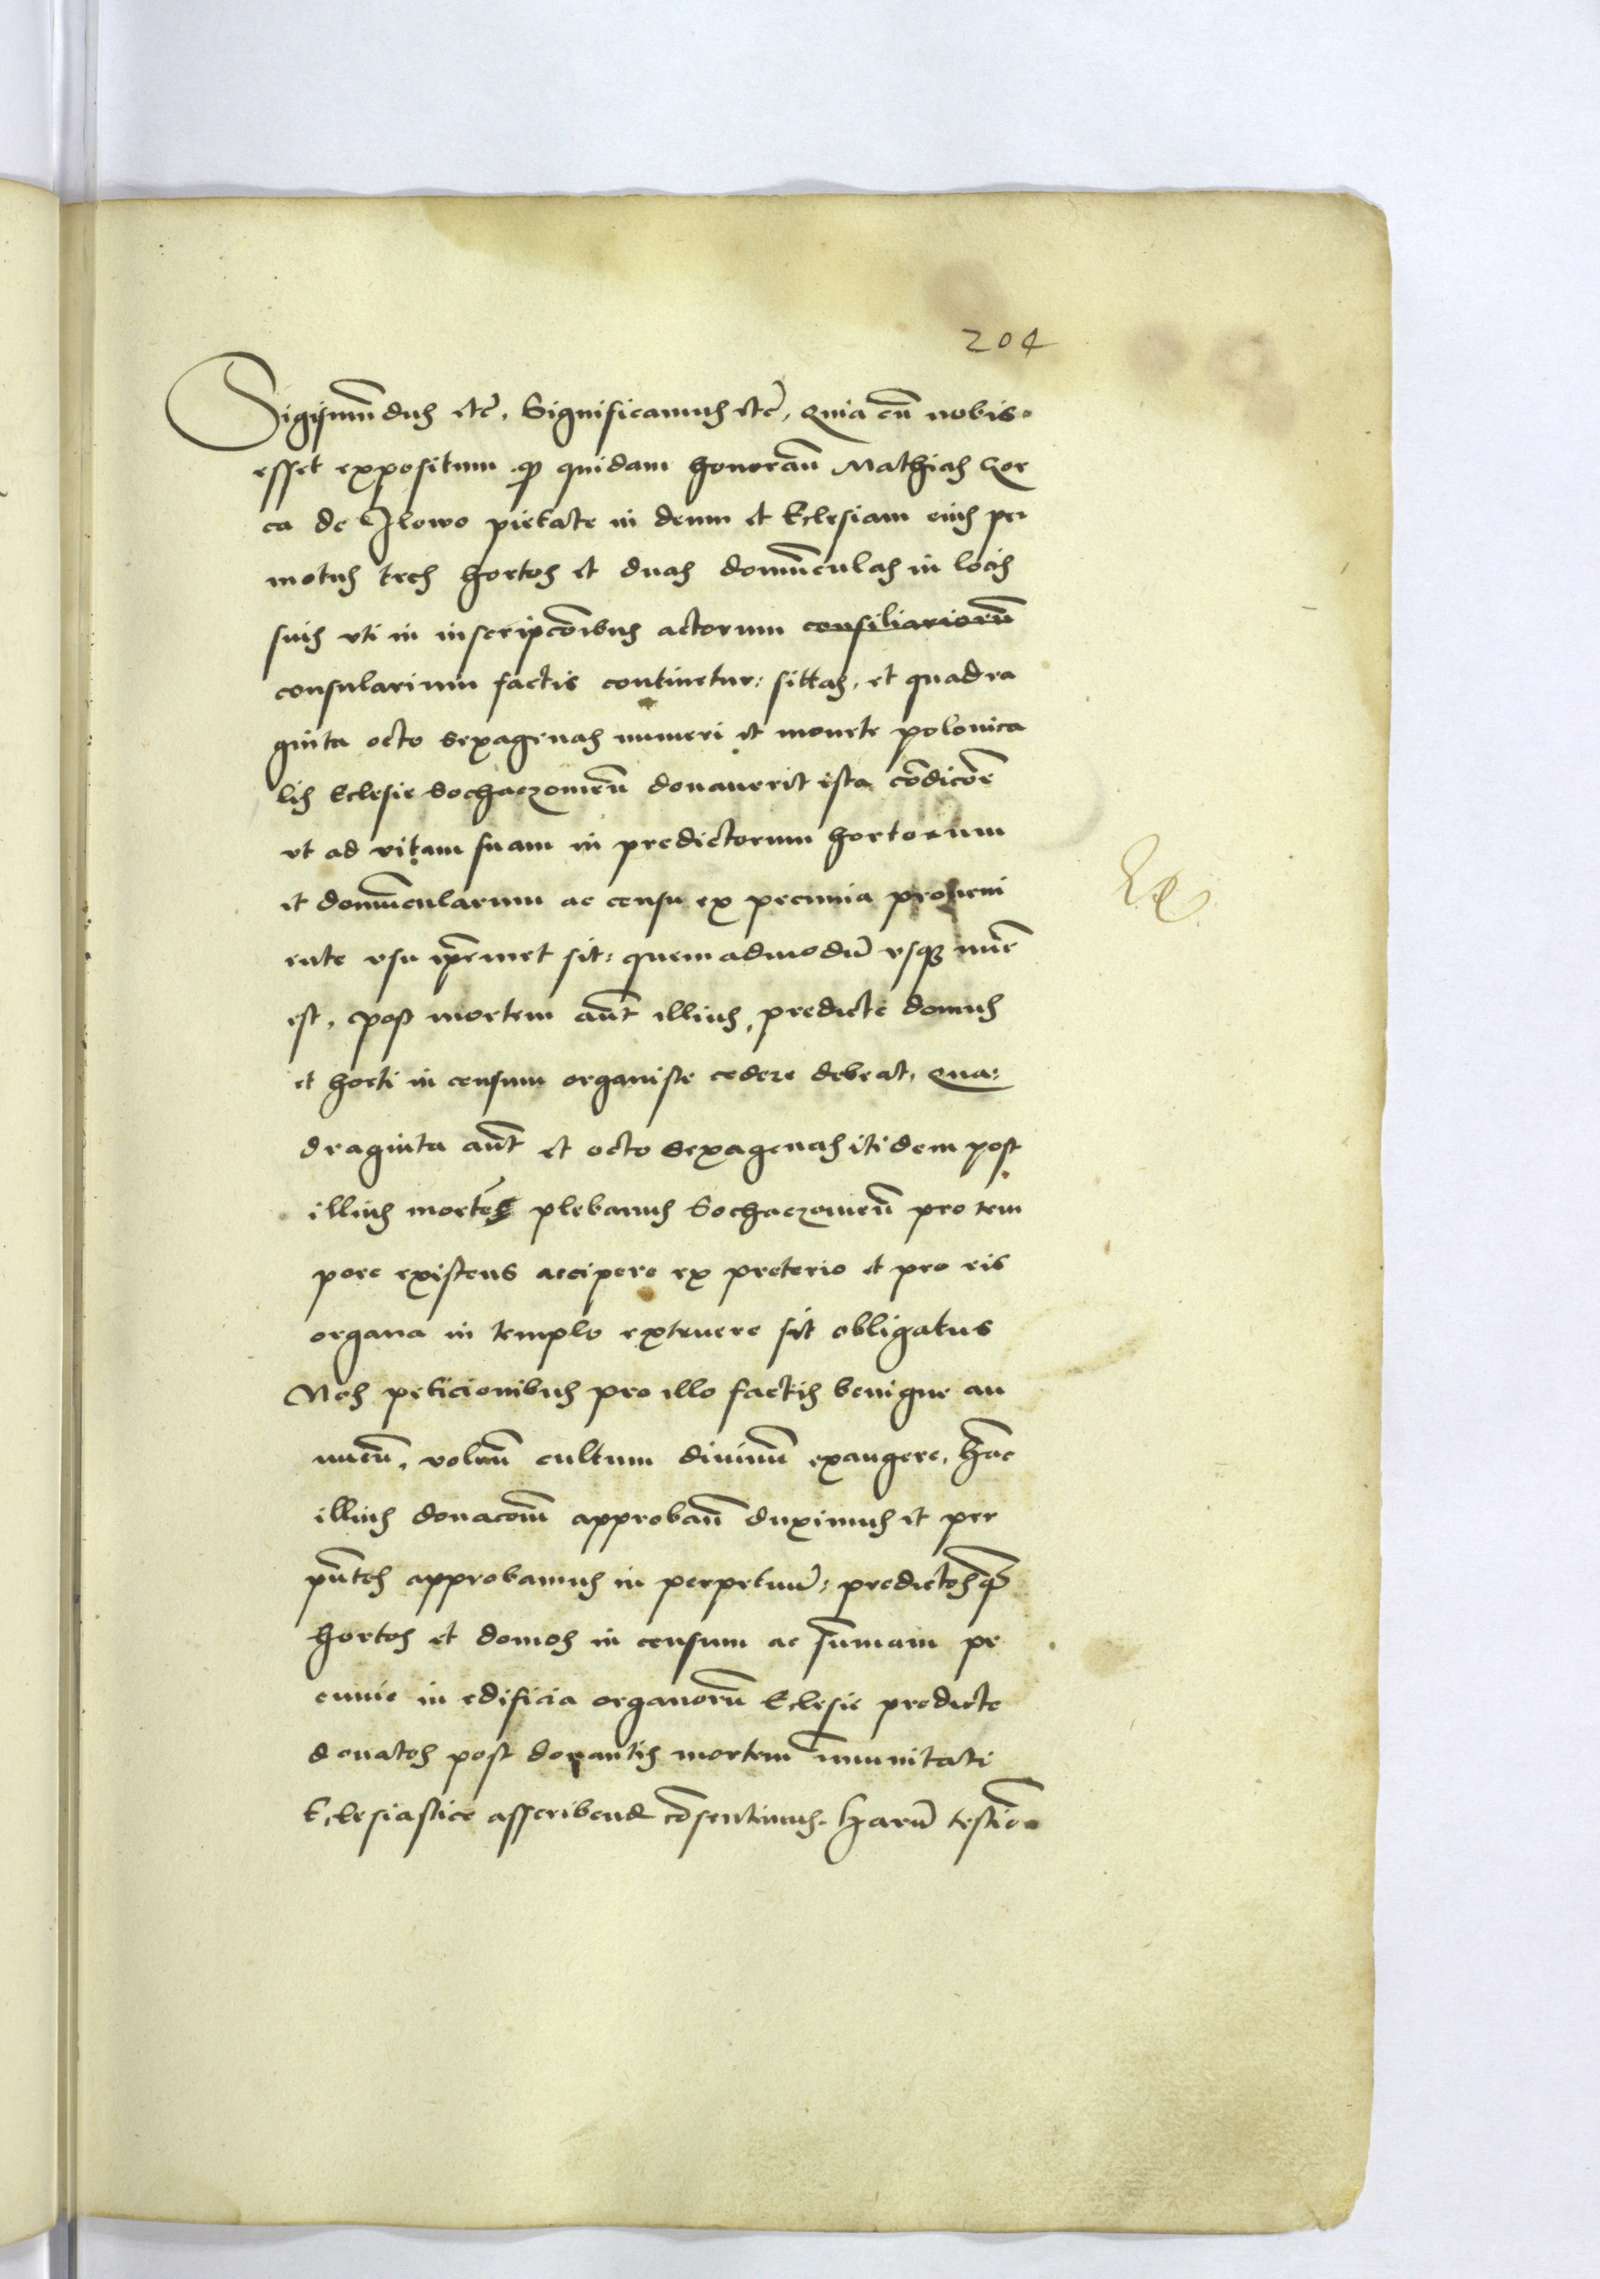 204
Sigismūdus etc̄. Significamus etc̄, quia cū nobis
esset expositum q̄ quidam honoraū Mathias Kor
ca de Ilowo pietate in deum et Eclesiam eius per
motus tres hortos et duas domūculas in locis
suis uti in inscripcōibus actorum consiliariorū
consularium factis continetur: sittas, et quadra
ginta octo sexagenas numeri et monete polonica
lis Eclesie Sochaczovieñ donaverit ista cōdicōe
ut ad vitam suam in predictorum hortorum
et domūcularum ac censu ex pecunia proveni
ente usu ipēmet sit: quemadmodū usqȝ nūc
est, post mortem aūt illius, predicte domus
et horti in censum organiste cedere debeat, Qua:
draginta aūt et octo sexagenas itidem post
illius mortē plebanus Sochaczovieñ pro tem
pore existens accipere ex preterio et pro eis
organa in templo extruere sit obligatus
Nos peticionibus pro illo factis benigne an
nueñ, volūn cultum divinū exaugere, hāc
illius donacōnē approbañ duximus et per
pñtes approbamus in perpetuū: predictosqȝ
hortos et domos in censum ac sūmam pe
cunie in edificia organorū Eclesie predicte
donatos post donantis mortem īmunitati
Eclesiastice asscribend cōsentimus. Harū testīō